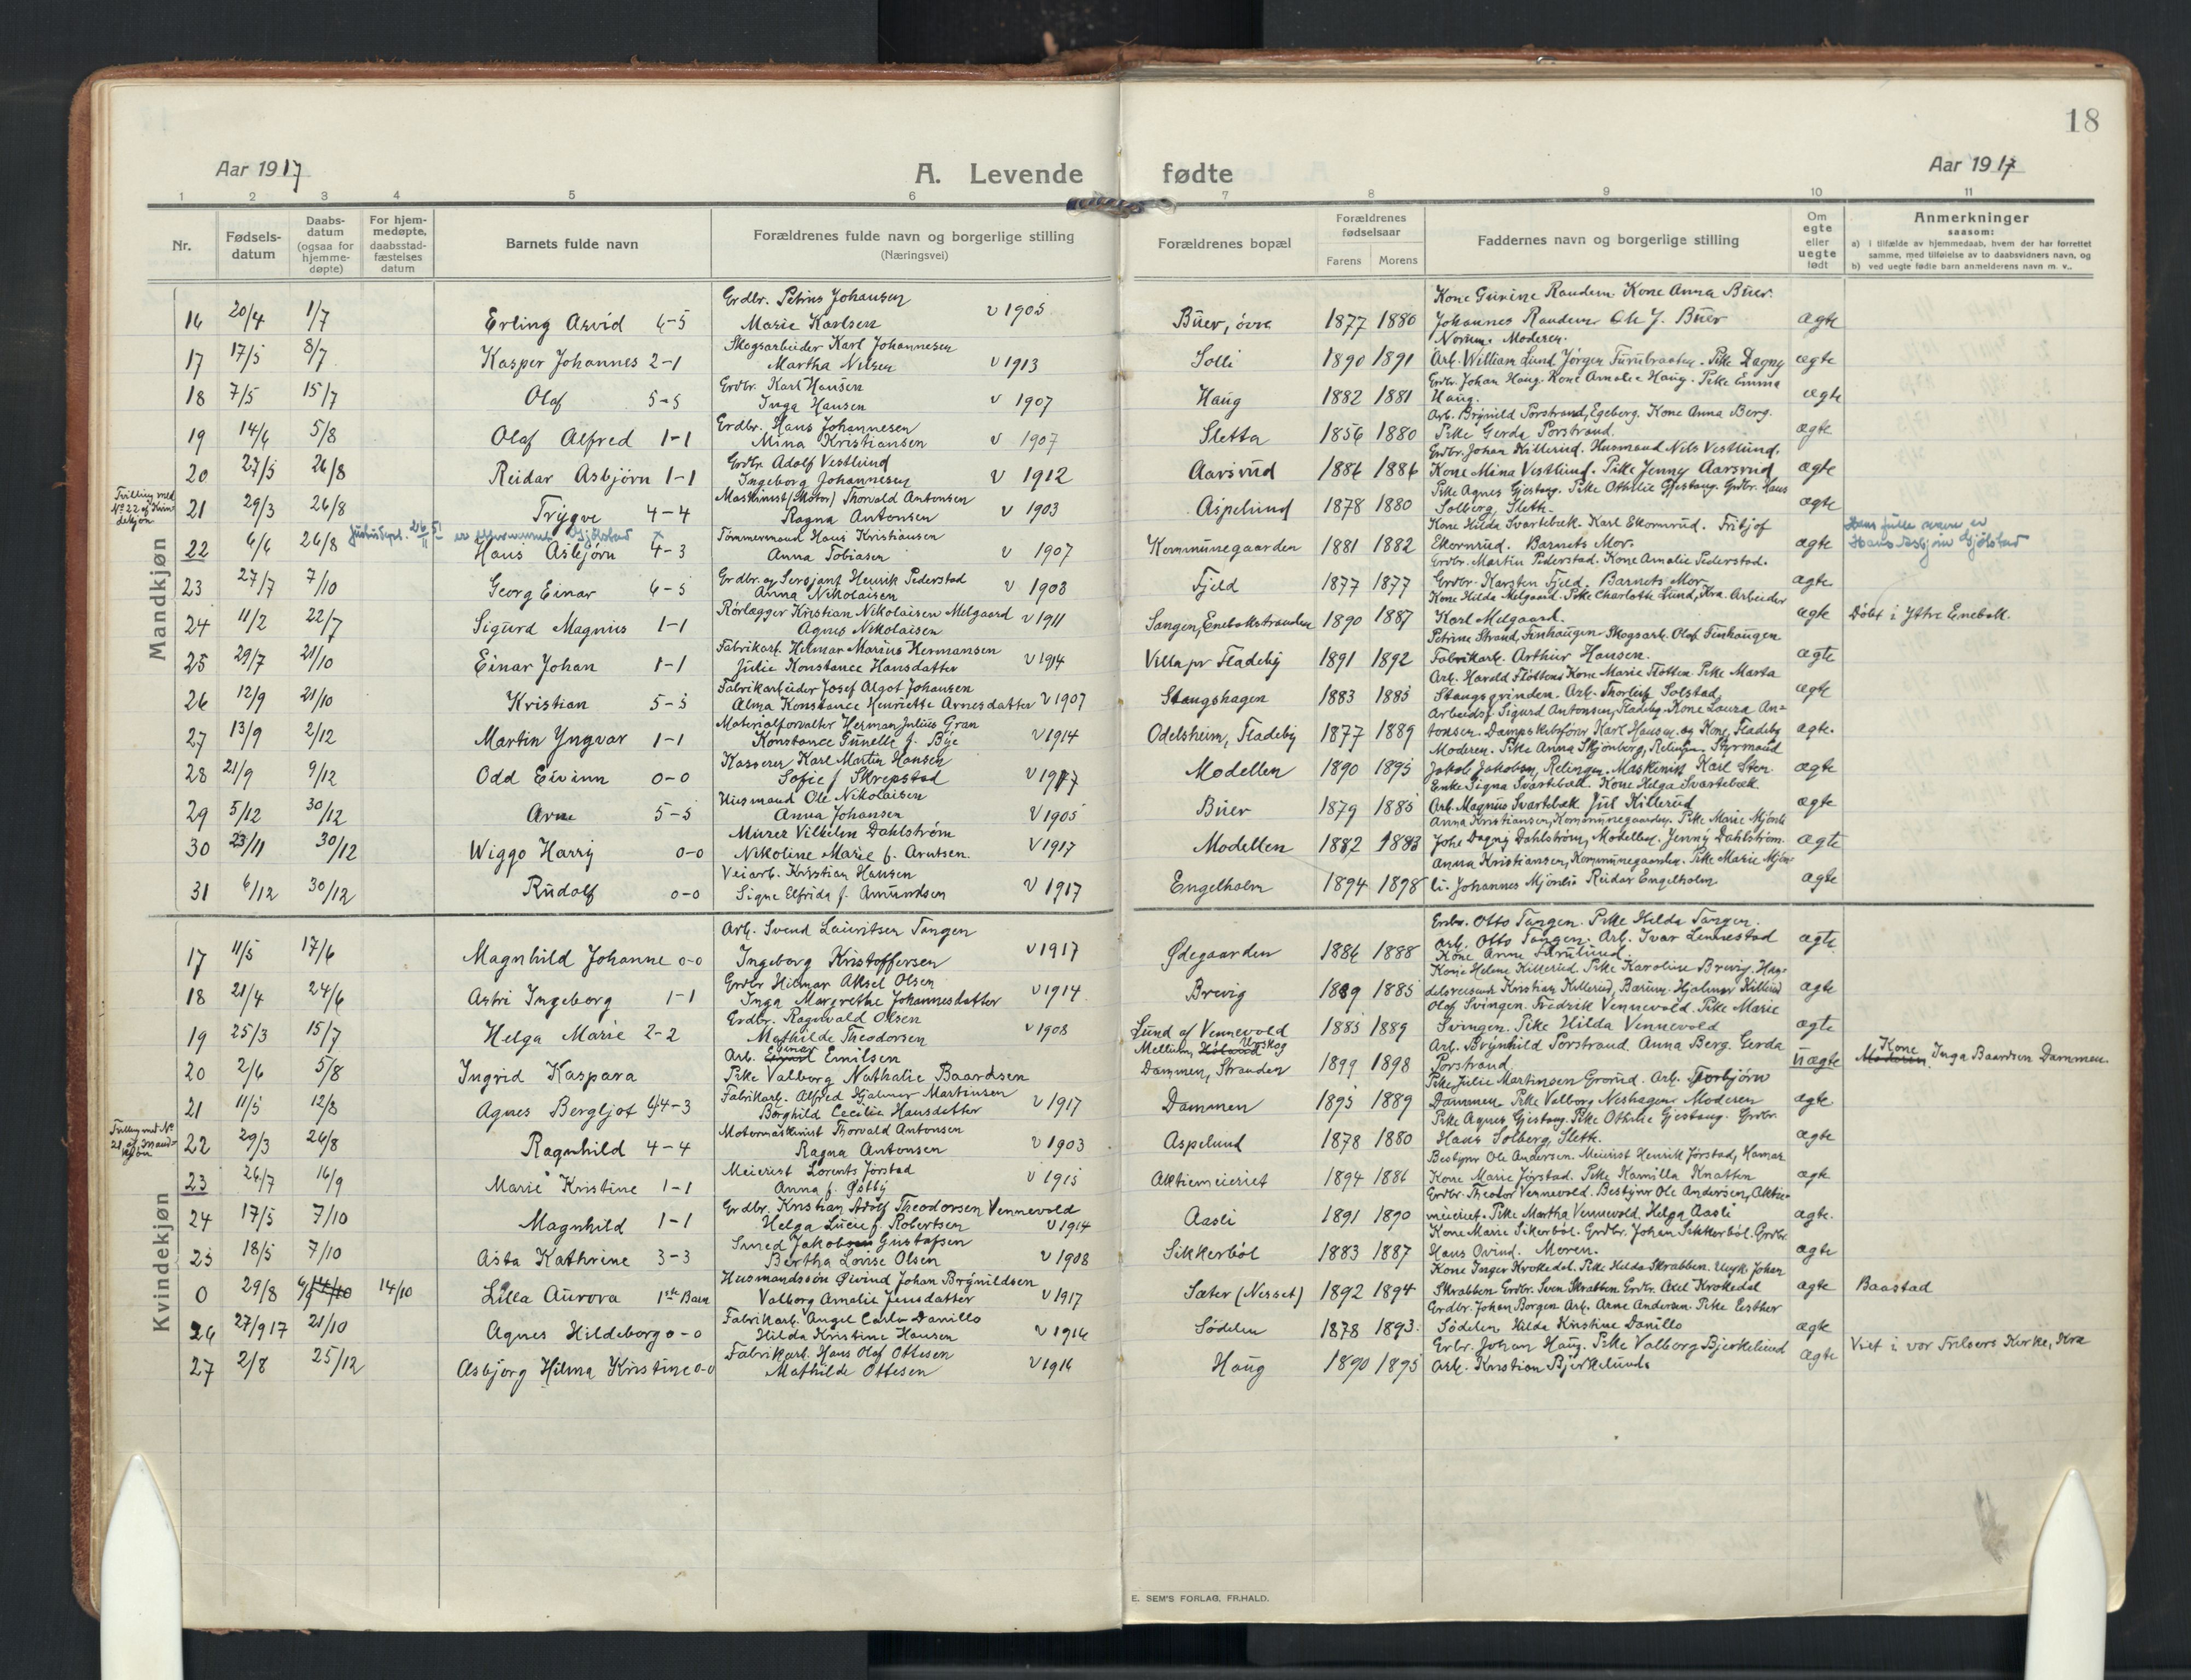 18
Aar 1917
A. Levende fødte
Aar 1917
1 2 3 4 5 6 7 8 9 10 11
Nr.
Fødsels-datum
Daabs-datum (ogsaa for hjemme-døpte)
For hjem-medøpte, daabsstad-fæstelses datum
Barnets fulde navn
Forældrenes fulde navn og borgerlige stilling (Næringsvei)
Forældrenes bopæl
Forældrenes fødselsaar Farens Morens
Faddernes navn og borgerlige stilling
Om egte eller uegte født
Anmerkninger saasom:
a) i tilfælde av hjemmedaab, hvem der har forrettet samme, med tilføielse av to daabsvidners navn, og
b) ved uegte fødte barn anmelderens navn m. v..
Mandkjøn
16 20/4 1/7 Erling Arvid 6-5 Grdbr. Petrus Johansen Marie Karlsen v 1905 Buer, övre 1877 1880 Kone Gurine Randem. Kone Anna Buer. Johannes Randem Ole J. Buer ægte
17 17/5 8/7 Kasper Johannes 2-1 Skogsarbeider Karl Johannesen Martha Nilsen v 1913 Solli 1890 1891 Moderen. Arb. William Lund Jörgen Furubraaten. Pike Dagny ægte
18 7/5 15/7 Olaf 5-5 Grdbr. Karl Hansen Inga Hansen v 1907 Haug 1882 1881 Grdbr. Johan Haug. Kone Amalie Haug. Pike Emma Haug. ægte
19 14/6 5/8 Olaf Alfred 1-1 Grdbr. Hans Johannesen Mina Kristiansen v 1907 Sletta 1856 1880 Arb. Brynild Porstrand, Egeberg. Kone Anna Berg. Pike Gerda Porstrand. ægte
20 27/5 26/8 Reidar Asbjörn 1-1 Grdbr. Adolf Vestlund Ingeborg Johannesen v 1912 Aarsrud 1886 1886 Grdbr. Johan Killerud. Husmand Nils Vestlund. Kone Mina Vestlund. Pike Jenny Aarsrud ægte
Tvilling med No 22 af Kvindekjøn 21 29/3 26/8 Trygve 4-4 Maskinist (Motor) Thorvald Antonsen Ragna Antonsen v 1903 Aspelund 1878 1880 Pike Agnes Gjestang. Pike Othilie Gjestang. Grdbr. Hans Solberg, Sleth. ægte
22 6/6 26/8 Hans Asbjørn 4-3 Tømmermand Hans Kristiansen Anna Tobiasen v 1907 Kommunegaarden 1881 1882 Kone Hilda Svartebæk. Karl Ekornrud. Fritjof Ekornrud. Barnets Mor. ægte Hans fulle navn er Hans Asbjørn Gjølstad
23 27/7 7/10 Georg Einar 6-5 Grdbr. og Sersjant Henrik Pederstad Anna Nikolaisen v 1903 Fjeld 1877 1877 Grdbr. Martin Pederstad. Kone Amalie Pederstad. Grdbr. Karsten Fjeld. Barnets Mor ægte
24 11/2 22/7 Sigurd Magnus 1-1 Rörlægger Kristian Nikolaisen Melgaard Agnes Nikolaisen v 1911 Sangen, Enebakstranden 1890 1887 Kone Hilda Melgaard. Pike Charlotte Lund, Kra. Arbeider Karl Melgaard. ægte Döbt i Ytre Enebak.
25 29/7 21/10 Einar Johan 1-1 Fabrikarb. Helmar Marius Hermansen Julie Konstance Hansdatter v 1914 Villa pr Fladeby 1891 1892 Petrine Strand, Finhaugen Skogsarb. Olaf Finhaugen Fabrikarb. Arthur Hansen. ægte
26 12/9 21/10 Kristian 5-5 Fabrikarbeider Josef Algot Johansen Alma Konstance Henriette Arnesdatter v 1907 Stangshagen 1883 1885 Arb. Harald Flötten Kone Marie Flötten Pike Marta Stangsgrinden. Arb. Thorleif Solstad. ægte
27 13/9 2/12 Martin Yngvar 1-1 Materialforvalter Herman Julius Gran Konstance Gunelle f. Bye v 1914 Odelsheim, Fladeby 1877 1889 Arbeidsf. Sigurd Antonsen, Fladeby. Kone Laura Antonsen. Dampskibsförer Karl Hansen og Kone, Fladeby ægte.
28 21/9 9/12 Odd Eivinn 0-0 Kasserer Karl Martin Hansen Sofie f Skrepstad v 1917 Modellen 1890 1895 Moderen. Pike Anna Skjönberg, Relingen. Styrmand Jakob Jakobsen, Relingen. Maskinist Karl Sten ægte
29 5/12 30/12 Arne 5-5 Husmand Ole Nikolaisen Anna Johansen v 1905 Buer 1879 1885 Enke Signa Svartebæk. Kone Helga Svartebæk. Arb. Magnus Svartebæk Jul Killerud ægte
30 23/11 30/12 Wiggo Harry 0-0 Murer Vilhelm Dahlström Nikoline Marie f. Arntsen. v 1917 Modellen 1882 1883 Dagny Dahlström, Modellen. Jenny Dahlström. ægte
31 6/12 30/12 Rudolf 0-0 Veiarb. Kristian Hansen Signe Elfrida f. Amundsen v 1917 Engelholm 1894 1898 Anna Kristiansen, Kommunegaarden. Pike Marie Mjönli. Johannes Mjönli Reidar Engelholm ægte
Kvindekjøn
17 11/5 17/6 Magnhild Johanne 0-0 Arb. Svend Lauritsen Tangen Ingeborg Kristoffersen v 1917 Ødegaarden 1886 1888 Otto Tangen. Pike Hilda Tangen. Arb. Otto Tangen. Arb. Ivar Lennestad Kone Anne ægte
18 21/4 24/6 Astri Ingeborg 1-1 Grdbr Hilmar Aksel Olsen Inga Margrethe Johannesdatter v 1914 Brevig 1889 1885 Kone Helene Killerud. Pike Karoline Brevig. Handelsreisende Kristian Killerud, Bærum. Hjalmar Killerud ægte
19 25/3 15/7 Helga Marie 2-2 Grdbr. Ragnvald Olsen Mathilde Theodorsen v 1908 Lund af Vennevold 1885 1889 Olaf Svingen. Fredrik Vennevold. Pike Marie Svingen. Pike Hilda Vennevold ægte
20 2/6 5/8 Ingrid Kaspara Arb. Einar Emilsen Pike Valborg Nathalie Baardsen Mellum, Høland Urskog Dammen, Stranden 1899 1898 Arb. Brynhild Porstrand. Anna Berg. Gerda Porstrand. uægte Moderen Kone Inga Baardsen Dammen.
21 11/5 12/8 Agnes Bergljot 4-3 Fabrikarb. Alfred Hjalmar Martinsen Borghild Cecilie Hansdatter v 1917 Dammen 1895 1889 Pike Julie Martinsen Grorud. Arb. Torbjörn Dammen. Pike Valborg Neshagen. Moderen ægte
Tvilling med No 21 af Mandkjøn 22 29/3 26/8 Ragnhild 4-4 Motormaskinist Thorvald Antonsen Ragna Antonsen v 1903 Aspelund 1878 1880 Pike Agnes Gjestang. Pike Othilie Gjestang. Grdbr. Hans Solberg, Sleth. ægte
23 26/7 16/9 Marie Kristine 1-1 Meierist Lorents Jörstad Anna f. Østby v 1915 Aktiemeieriet 1894 1886 Bestyrer Ole Andersen. Meierist Henrik Jörstad, Hamar Kone Marie Jörstad. Pike Kamilla Knatten ægte
24 17/5 7/10 Magnhild 1-1 Grdbr. Kristian Adolf Theodorsen Vennevold Helga Lucie f. Robertsen v 1914 Aasli 1891 1890 Grdbr. Theodor Vennevold. Bestyrer Ole Andersen, Aktiemeieriet. Pike Martha Vennevold. Helga Aasli ægte.
25 18/5 7/10 Asta Kathrine 3-3 Smed Jakob Gustafsen Bertha Lovise Olsen v 1908 Sikkerböl 1883 1887 Kone Marie Sikerböl. Grdbr. Johan Sikkerböl. Grdbr. Hans Ovind. Moren. ægte
0 29/8 14/10 14/10 Lilla Aurora 1ste Barn Husmandssön Øivind Johan Brynildsen Valborg Amalie Jensdatter v 1917 Sæter (Nesset) 1892 1894 Kone Inger Krokedal. Pike Hilda Skrabben. Ungk. Johan Skrabben. Grdbr. Sven Skrabben Grdbr. Axel Krokedal ægte Baastad
26 27/9 17 21/10 Agnes Hildeborg 0-0 Fabrikarb. Angel Carlo Danillo Hilda Kristine Hansen v 1916 Södelen 1878 1893. Grdbr. Johan Borgen Arb. Arne Andersen. Pike Esther Södelen Hilda Kristine Danillo ægte
27 2/8 25/12 Asbjörg Hilma Kristine 0-0 Fabrikarb. Hans Olaf Ottesen Mathilde Ottesen v 1916 Haug 1890 1895 Johan Haug. Pike Valborg Bjerkelund Arb. Kristian Bjerkelund ægte Viet i vor Frelsers Kirke, Kra
E. SEM'S FORLAG, FR.HALD.